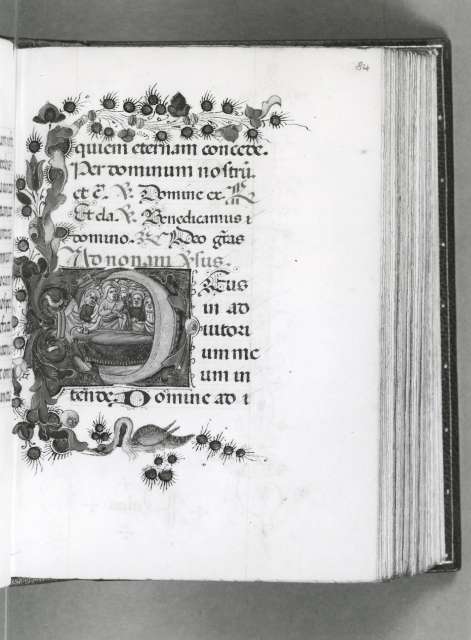 84
quiem eternam concede.
Per dominum nostrũ.
et c̃. ℣. Domine ex. ℟
Et cla. ℣. Benedicamus
domino. ℟ Deo gr̃as
Ad nonam ℣sus.
Deus
in ad
iutori
um me
um in
tende. Domine ad